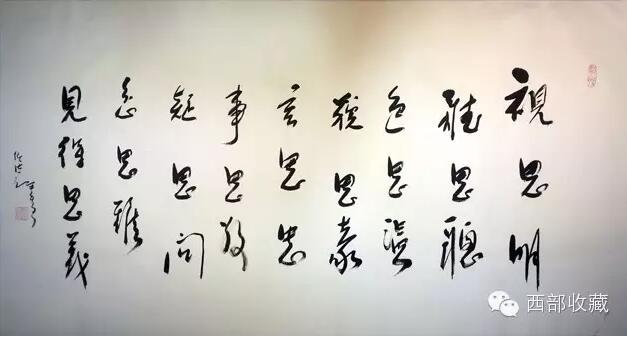 視思明
聽思聰
色思溫
貌思恭
言思忠
事思敬
疑思問
忿思難
見得思義
西部收藏